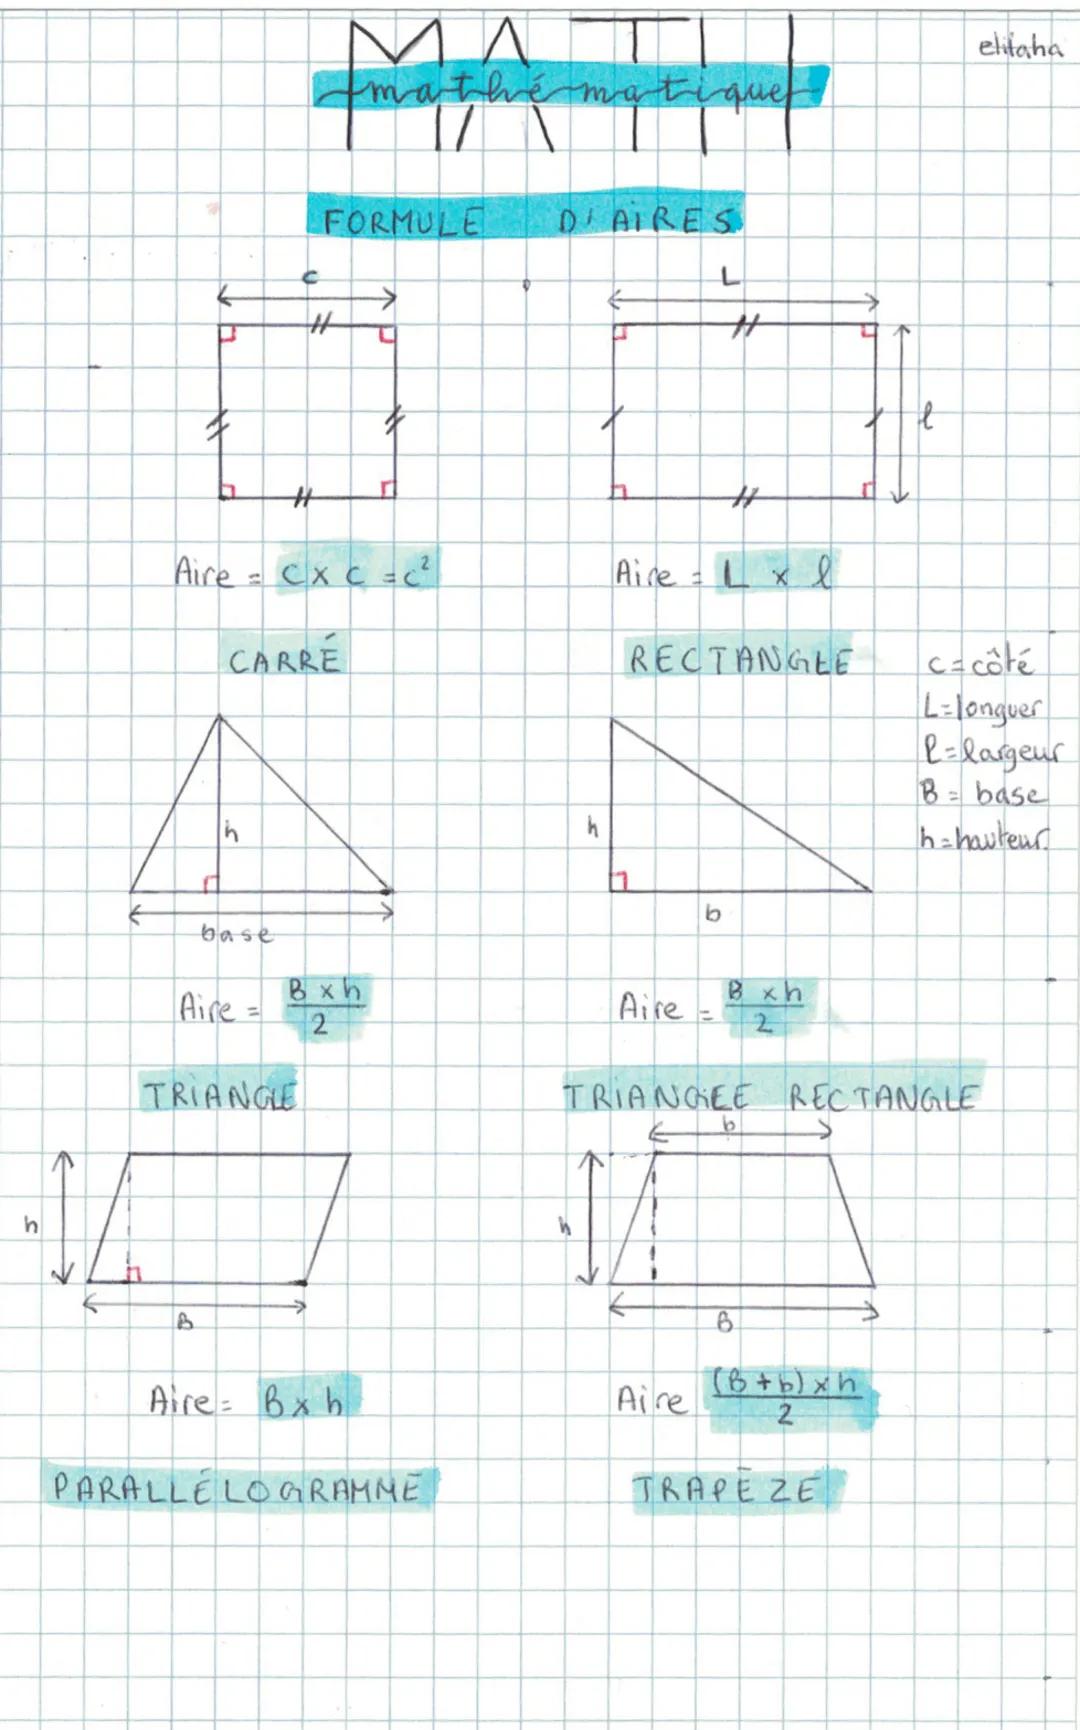 elifaha
MATH
mathématique
FORMULE D'AIRES
c
L
l
Aire = c x c = c²
Aire = L x l
CARRÉ
RECTANGLE
c = côté
L = longuer
l = largeur
B = base
h = hauteur
h
base
h
b
Aire = B x h / 2
Aire = B x h / 2
TRIANGLE
TRIANGLE RECTANGLE
h
B
b
h
B
Aire = B x h
Aire (B + b) x h / 2
PARALLÉLOGRAMME
TRAPÈZE